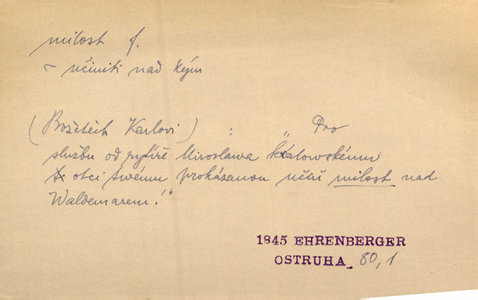 milost f.
~ učiniti nad kým
(Božětěch Karlovi) : "Pro
službu od rytíře Miroslawa králowskému
otci twému prokázanou učiň milost nad
Waldemarem!"
1845 EHRENBERGER
OSTRUHA 80,1